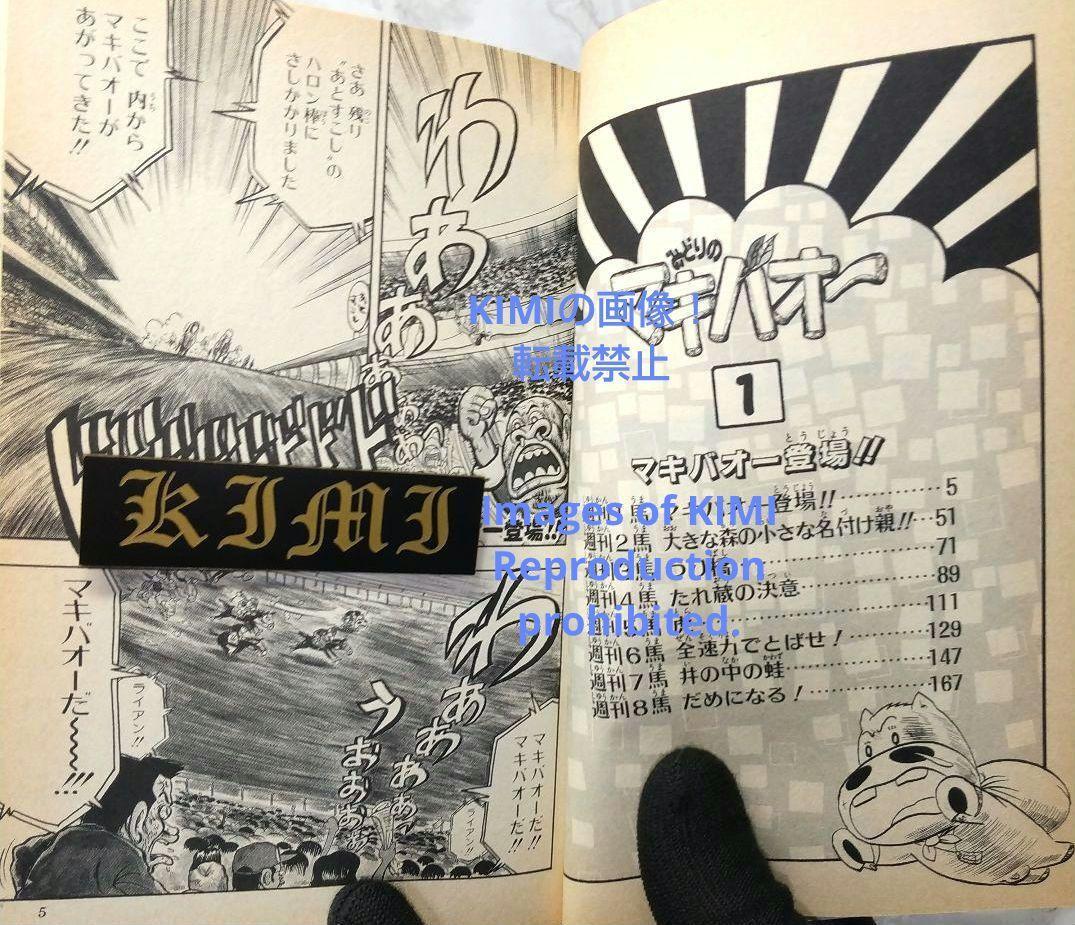 みどりの
マキバオー
1
マキバオー登場!!
週刊1馬 マキバオー登場!!…………5
週刊2馬 大きな森の小さな名付け親!!…51
71
週刊4馬 たれ蔵の決意…………89
111
週刊6馬 全速力でとばせ!…………129
週刊7馬 井の中の蛙…………147
週刊8馬 だめになる!…………167
わ
あ
あ
あ
あ
さあ 残り
"あとすこし"の
ハロン棒に
さしかかりました
ここで 内から
マキバオーが
あがってきた!!
ー登場!!
わ
あ
あ
あ
あ
う
お
お
お
マキバオーだ!!
マキバオーだ!!
ライアン!!
ライアン!!
マキバオーだ〜〜〜!!!
5
KIMI
KIMIの画像!
転載禁止
Images of KIMI
Reproduction
prohibited.